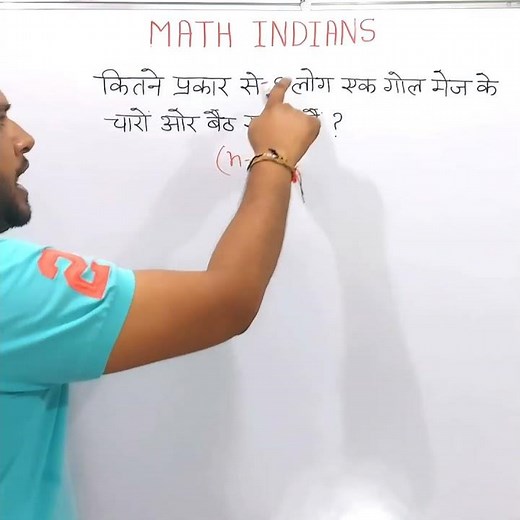 MATH INDIANS
कितने प्रकार से लोग एक गोल मेज के
चारों ओर बैठ ?
(n-